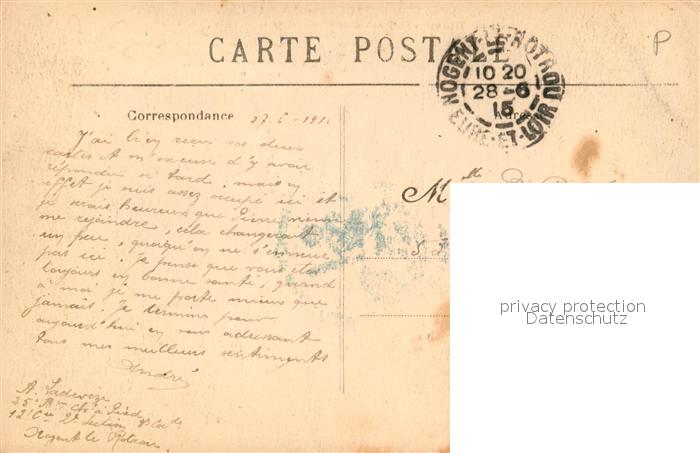 P
CARTE POSTALE
NOGENT-LE-ROTROU
10 20
28-6
15
EURE-ET-LOIR
Correspondance 27-6-191
Adresse
J'ai bien reçu vos deux
cartes et m'excuse d'y avoir
répondu si tard, mais en
effet je suis assez occupé ici et
je serais heureux que Pierre vienne
me rejoindre, cela changerait
un peu, quoiqu'on ne s'ennuie
pas ici. Je pense que vous êtes
toujours en bonne santé, quand
à moi je me porte mieux que
jamais. Je termine pour
aujourd'hui en vous adressant
tous mes meilleurs sentiments
André
Mlle
A.
25e à Pied
12e Cie 2e Section
Nogent le Rotrou
privacy protection
Datenschutz